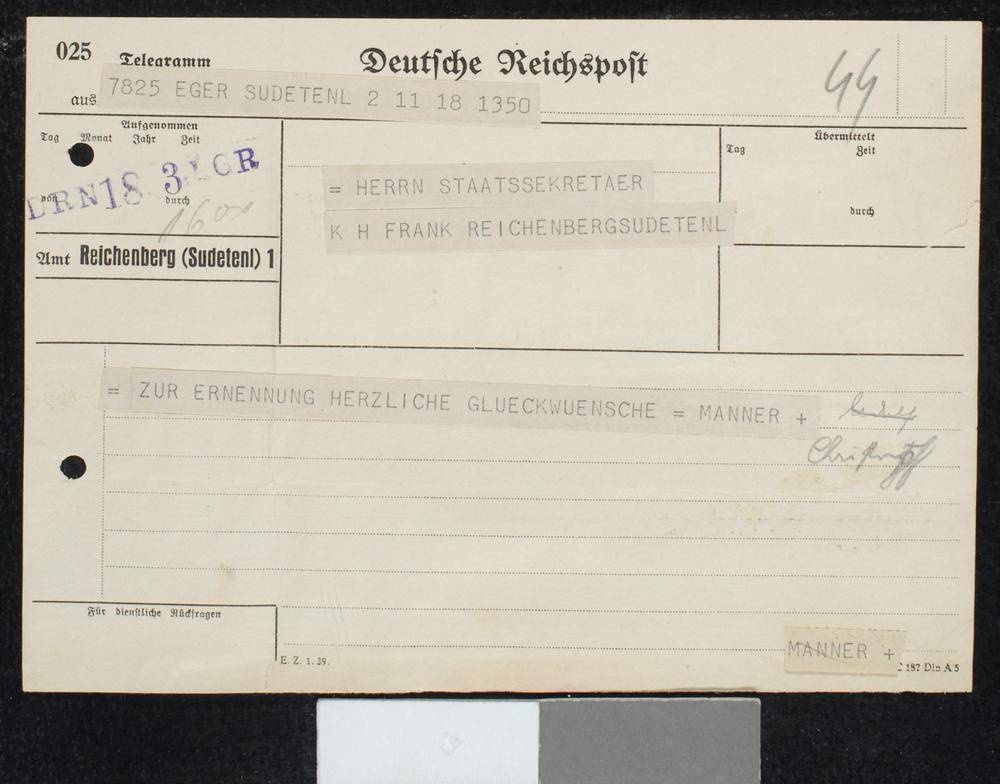 025 Telegramm Deutsche Reichspost 44
aus 7825 EGER SUDETENL 2 11 18 1350
Aufgenommen
Tag Monat Jahr Zeit
von durch
18 3.
1600
Amt Reichenberg (Sudetenl) 1
= HERRN STAATSSEKRETAER
K H FRANK REICHENBERGSUDETENL
Übermittelt
Tag Zeit
durch
= ZUR ERNENNUNG HERZLICHE GLUECKWUENSCHE = MANNER +
Für dienstliche Rückfragen
MANNER +
E. Z. 1. 39.
C 187 Din A 5